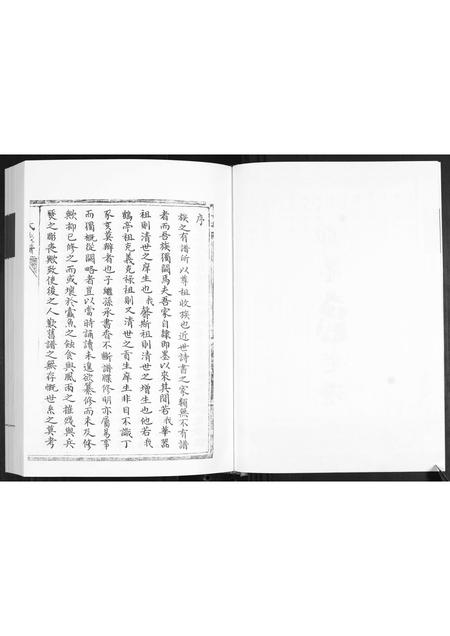 序
族之有譜所以尊祖收族也近世詩書之家類無不有譜
者而吾族獨闕焉夫吾家自隸即墨以來其間若我華器
祖則清世之庠生也我磐斯祖則清世之增生也他若我
鶴亭祖克義克祿祖則又清世之貢生庠生非目不識丁
豕亥莫辯者也子繼孫承書香不斷譜牒修明亦屬易事
而獨概從闕略者豈以當時誦讀未遑欲纂修而未及修
歟抑已修之而或壞於蠹魚之蝕食與風雨之摧殘與兵
燹之喪歟致使後之人歎舊譜之無存慨世系之莫考